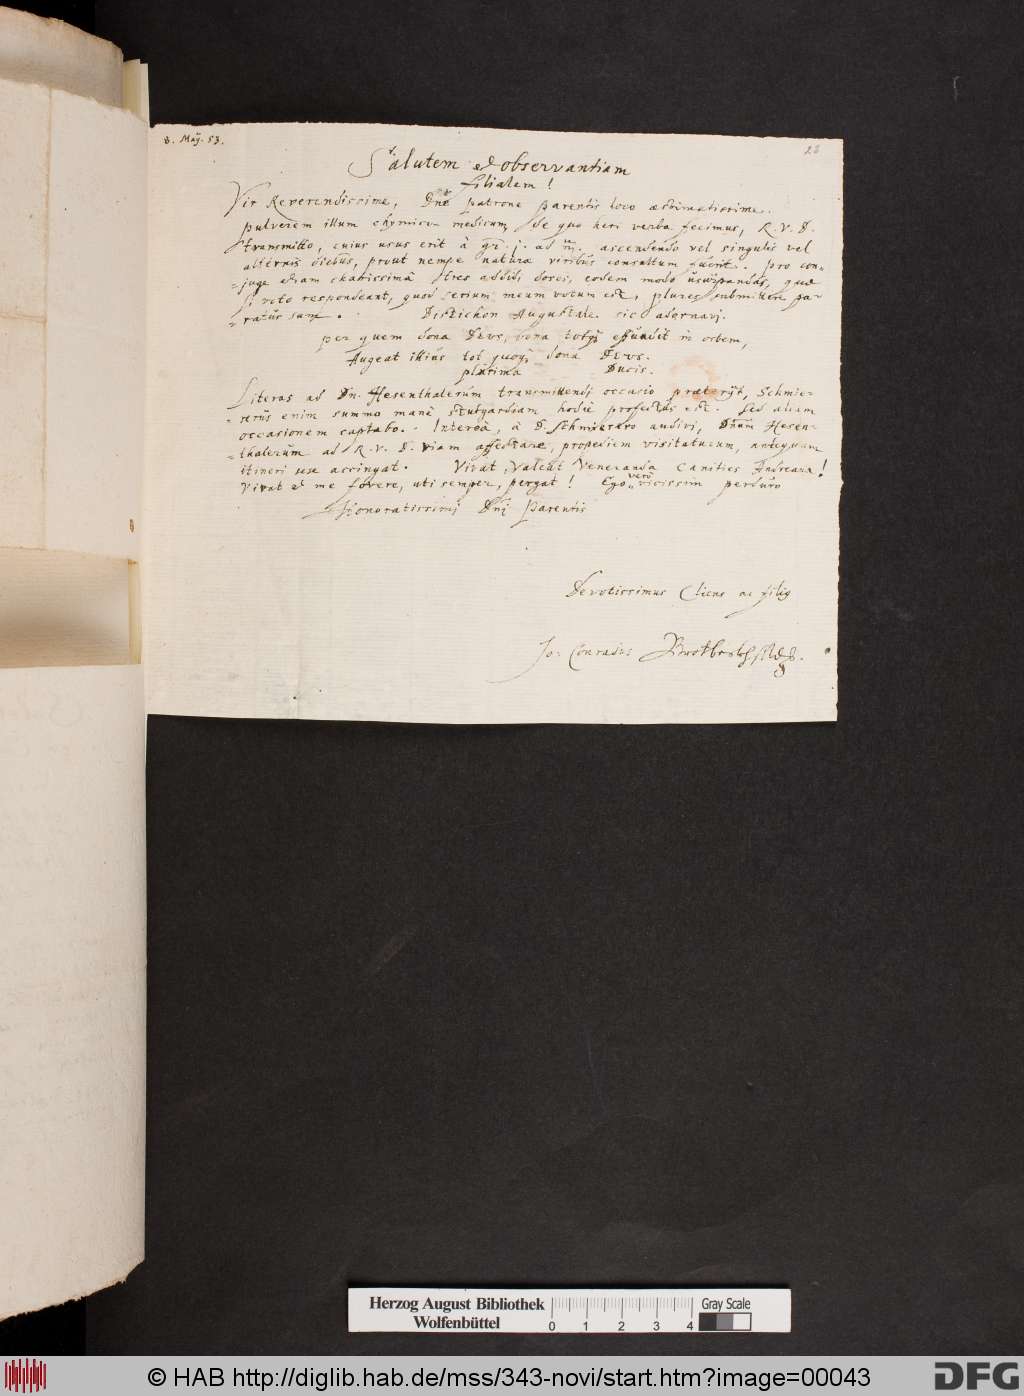 8. Maÿ. 53.
23
Salutem et observantiam
filialem!
Vir Reverendissime, Dne patrone parentis loco æstimatissime.
pulverem illum chymicum medicum, de quo heri verba fecimus, R. V. D.
transmitto, cuius usus erit à gr. j. ad iij. ascendendo vel singulis vel
alternis diebus, prout nempe natura viribus consultum fuerit. Pro con-
-juge etiam charissimâ tres addidi doses, eodem modo usurpandas, quæ
si voto respondeant, quod serium meum votum est, plures submittere pa-
-ratus sum. Distichon Augustale sic adornavi.
per quem dona Deus, bona totq effundit in orbem,
Augeat illius tot quoq dona Deus.
plurima Ducis.
Literas ad Dn. Hesenthalerum transmittendi occasio præteriit, Schmie-
-rerus enim summo mane Stutgardiam hodie profectus est. Sed aliam
occasionem captabo. Interea, à D. Schmierero audivi, Dnum Hesen-
-thalerum ad R. V. D. viam affectare, propediem visitaturum, antequam
itineri sese accingat. Vivat, Valeat Veneranda Canities Andreana!
Vivat et me fovere, uti semper, pergat! Ego vero vicissim perduro
Honoratissimj Dnj Parentis
Devotissimus Cliens ac filiq
Jo. Conradus Brotbeckh
Herzog August Bibliothek
Wolfenbüttel
0 1 2 3 4
Gray Scale
© HAB http://diglib.hab.de/mss/343-novi/start.htm?image=00043
DFG